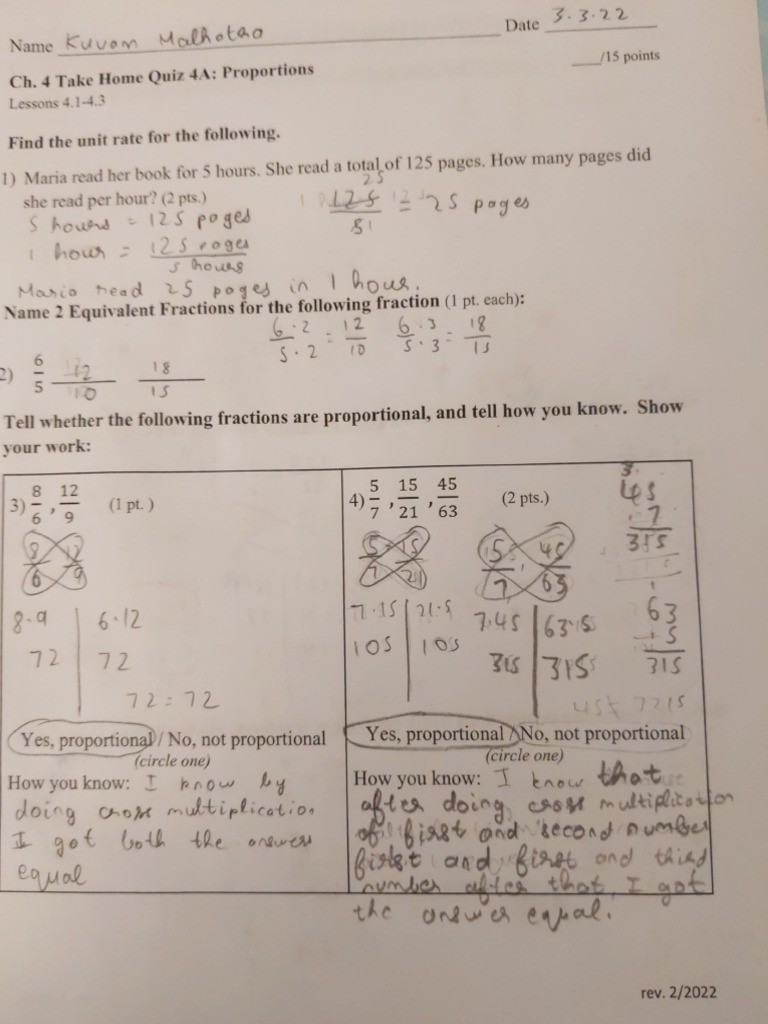 Name Kuvam Malhotra Date 3.3.22
Ch. 4 Take Home Quiz 4A: Proportions ___/15 points
Lessons 4.1-4.3
Find the unit rate for the following.
1) Maria read her book for 5 hours. She read a total of 125 pages. How many pages did
she read per hour? (2 pts.)
5 hours = 125 pages
1 hour = 125 pages / 5 hours
25
125 / 51 = 25 pages
Maria read 25 pages in 1 hour.
Name 2 Equivalent Fractions for the following fraction (1 pt. each):
6·2 / 5·2 = 12/10 6·3 / 5·3 = 18/15
2) 6/5 12/10 18/15
Tell whether the following fractions are proportional, and tell how you know. Show
your work:
3) 8/6 , 12/9 (1 pt. )
8/6 12/9
8·9 | 6·12
72 | 72
72 = 72
Yes, proportional / No, not proportional
(circle one)
How you know: I know by
doing cross multiplication
I got both the answers
equal
4) 5/7 , 15/21 , 45/63 (2 pts.)
5/7 15/21 5/7 , 45/63
7·15 | 21·5
105 | 105
7·45 | 63·5
315 | 315
3
45
·7
315
1
63
5
315
Yes, proportional / No, not proportional
(circle one)
How you know: I know that
after doing cross multiplication
of first and second number
first and first and third
number after that I got
the answer equal.
rev. 2/2022